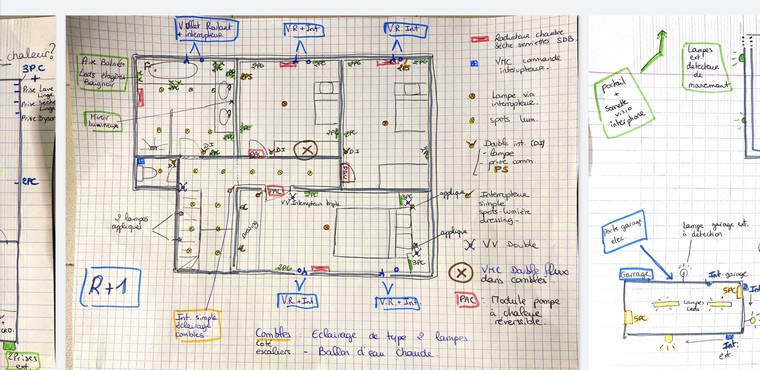 chaleur?
3PC
+
Prise Lave
Linge
Prise Sèche
Linge
Prise Dyson
2PC
2 Prises
ext.
Volet Roulant
+ interrupteur
VR + Int
VR Int
Prise Balnéo
Leds étagères
Baignoir
Miroir
lumineux
DI
DI
DI
PAC
PAC
PAC
VV Interrupteur triple
dressing
2 lampes
appliques
applique
applique
3PC
3PC
2PC
R+1
VR + Int
VR + Int
Int. simple
éclairage
combles
Combles - Eclairage de type 2 lampes
côté
escaliers - Ballon d'eau chaude.
Radiateur chambre
Sèche serviette SDB.
VMC commande
interrupteur.
Lampe via
interrupteur.
spots lum.
Double int. (DI)
- lampe
- prise comm.
PS
Interrupteur
simple
spots-lumière
dressing.
VV Double
VMC Double flux
dans combles.
PAC - Module pompe
à chaleur
réversible.
portail
+
sonnette
visio
interphone
Lampes
ext
détecteur
de
mouvement
porte garage
elec.
Lampe garage ext.
à détection.
Garage
Int. garage
5PC
5PC
Lampes
Leds
Int
Int.
ext.